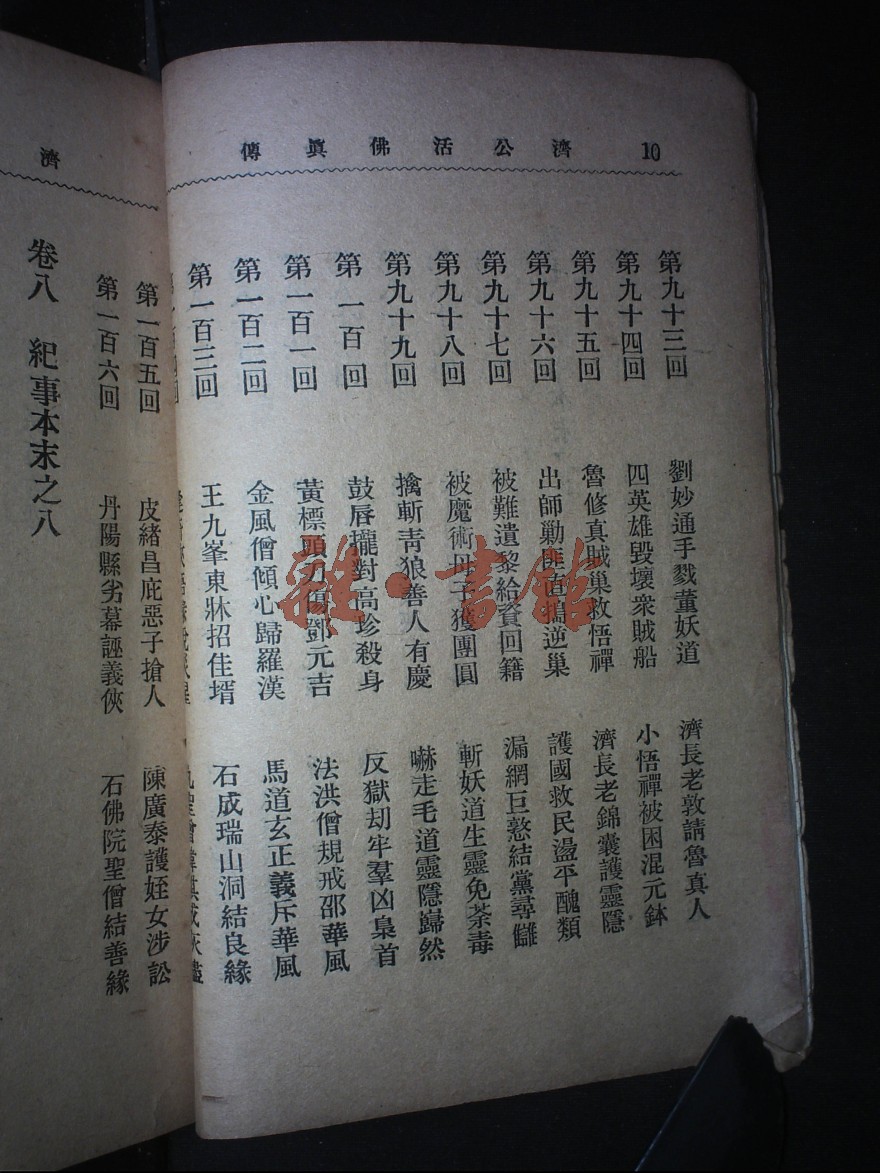 10 濟公活佛眞傳
第九十三回 劉妙通手戮董妖道 濟長老敦請魯真人
第九十四回 四英雄毀壞衆賊船 小悟禪被困混元鉢
第九十五回 魯修真賊巢救悟禪 濟長老錦囊護靈隱
第九十六回 出師勦匪直搗逆巢 護國救民盪平醜類
第九十七回 被難遺黎給資回籍 漏網巨憝結黨尋讎
第九十八回 被魔術母子獲團圓 斬妖道生靈免荼毒
第九十九回 擒斬青狼善人有慶 嚇走毛道靈隱巋然
第一百回 鼓唇攏對高珍殺身 反獄刧牢羣凶梟首
第一百一回 黃標頭刀傷鄧元吉 法洪僧規戒邵華風
第一百二回 金風僧傾心歸羅漢 馬道玄正義斥華風
第一百三回 王九峯東牀招佳壻 石成瑞山洞結良緣
濟
第一百五回 皮緒昌庇惡子搶人 陳廣泰護姪女涉訟
第一百六回 丹陽縣劣幕誣義俠 石佛院聖僧結善緣
卷八 紀事本末之八
雜·書館